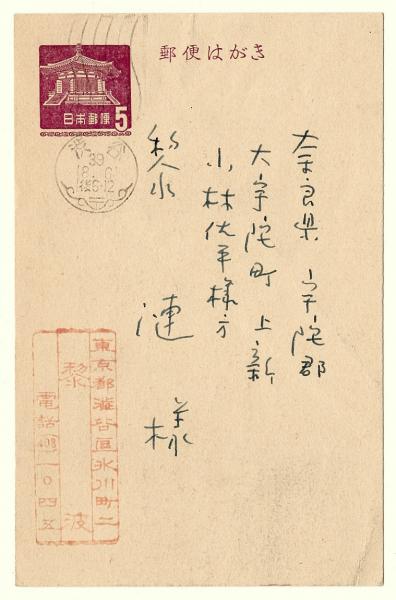 郵便はがき
日本郵便 5
渋谷
39
奈良県宇陀郡
大宇陀町上新
小林伏平様方
黎 漣 様
東京都渋谷区氷川町二
黎 波
電話(408)一〇四五